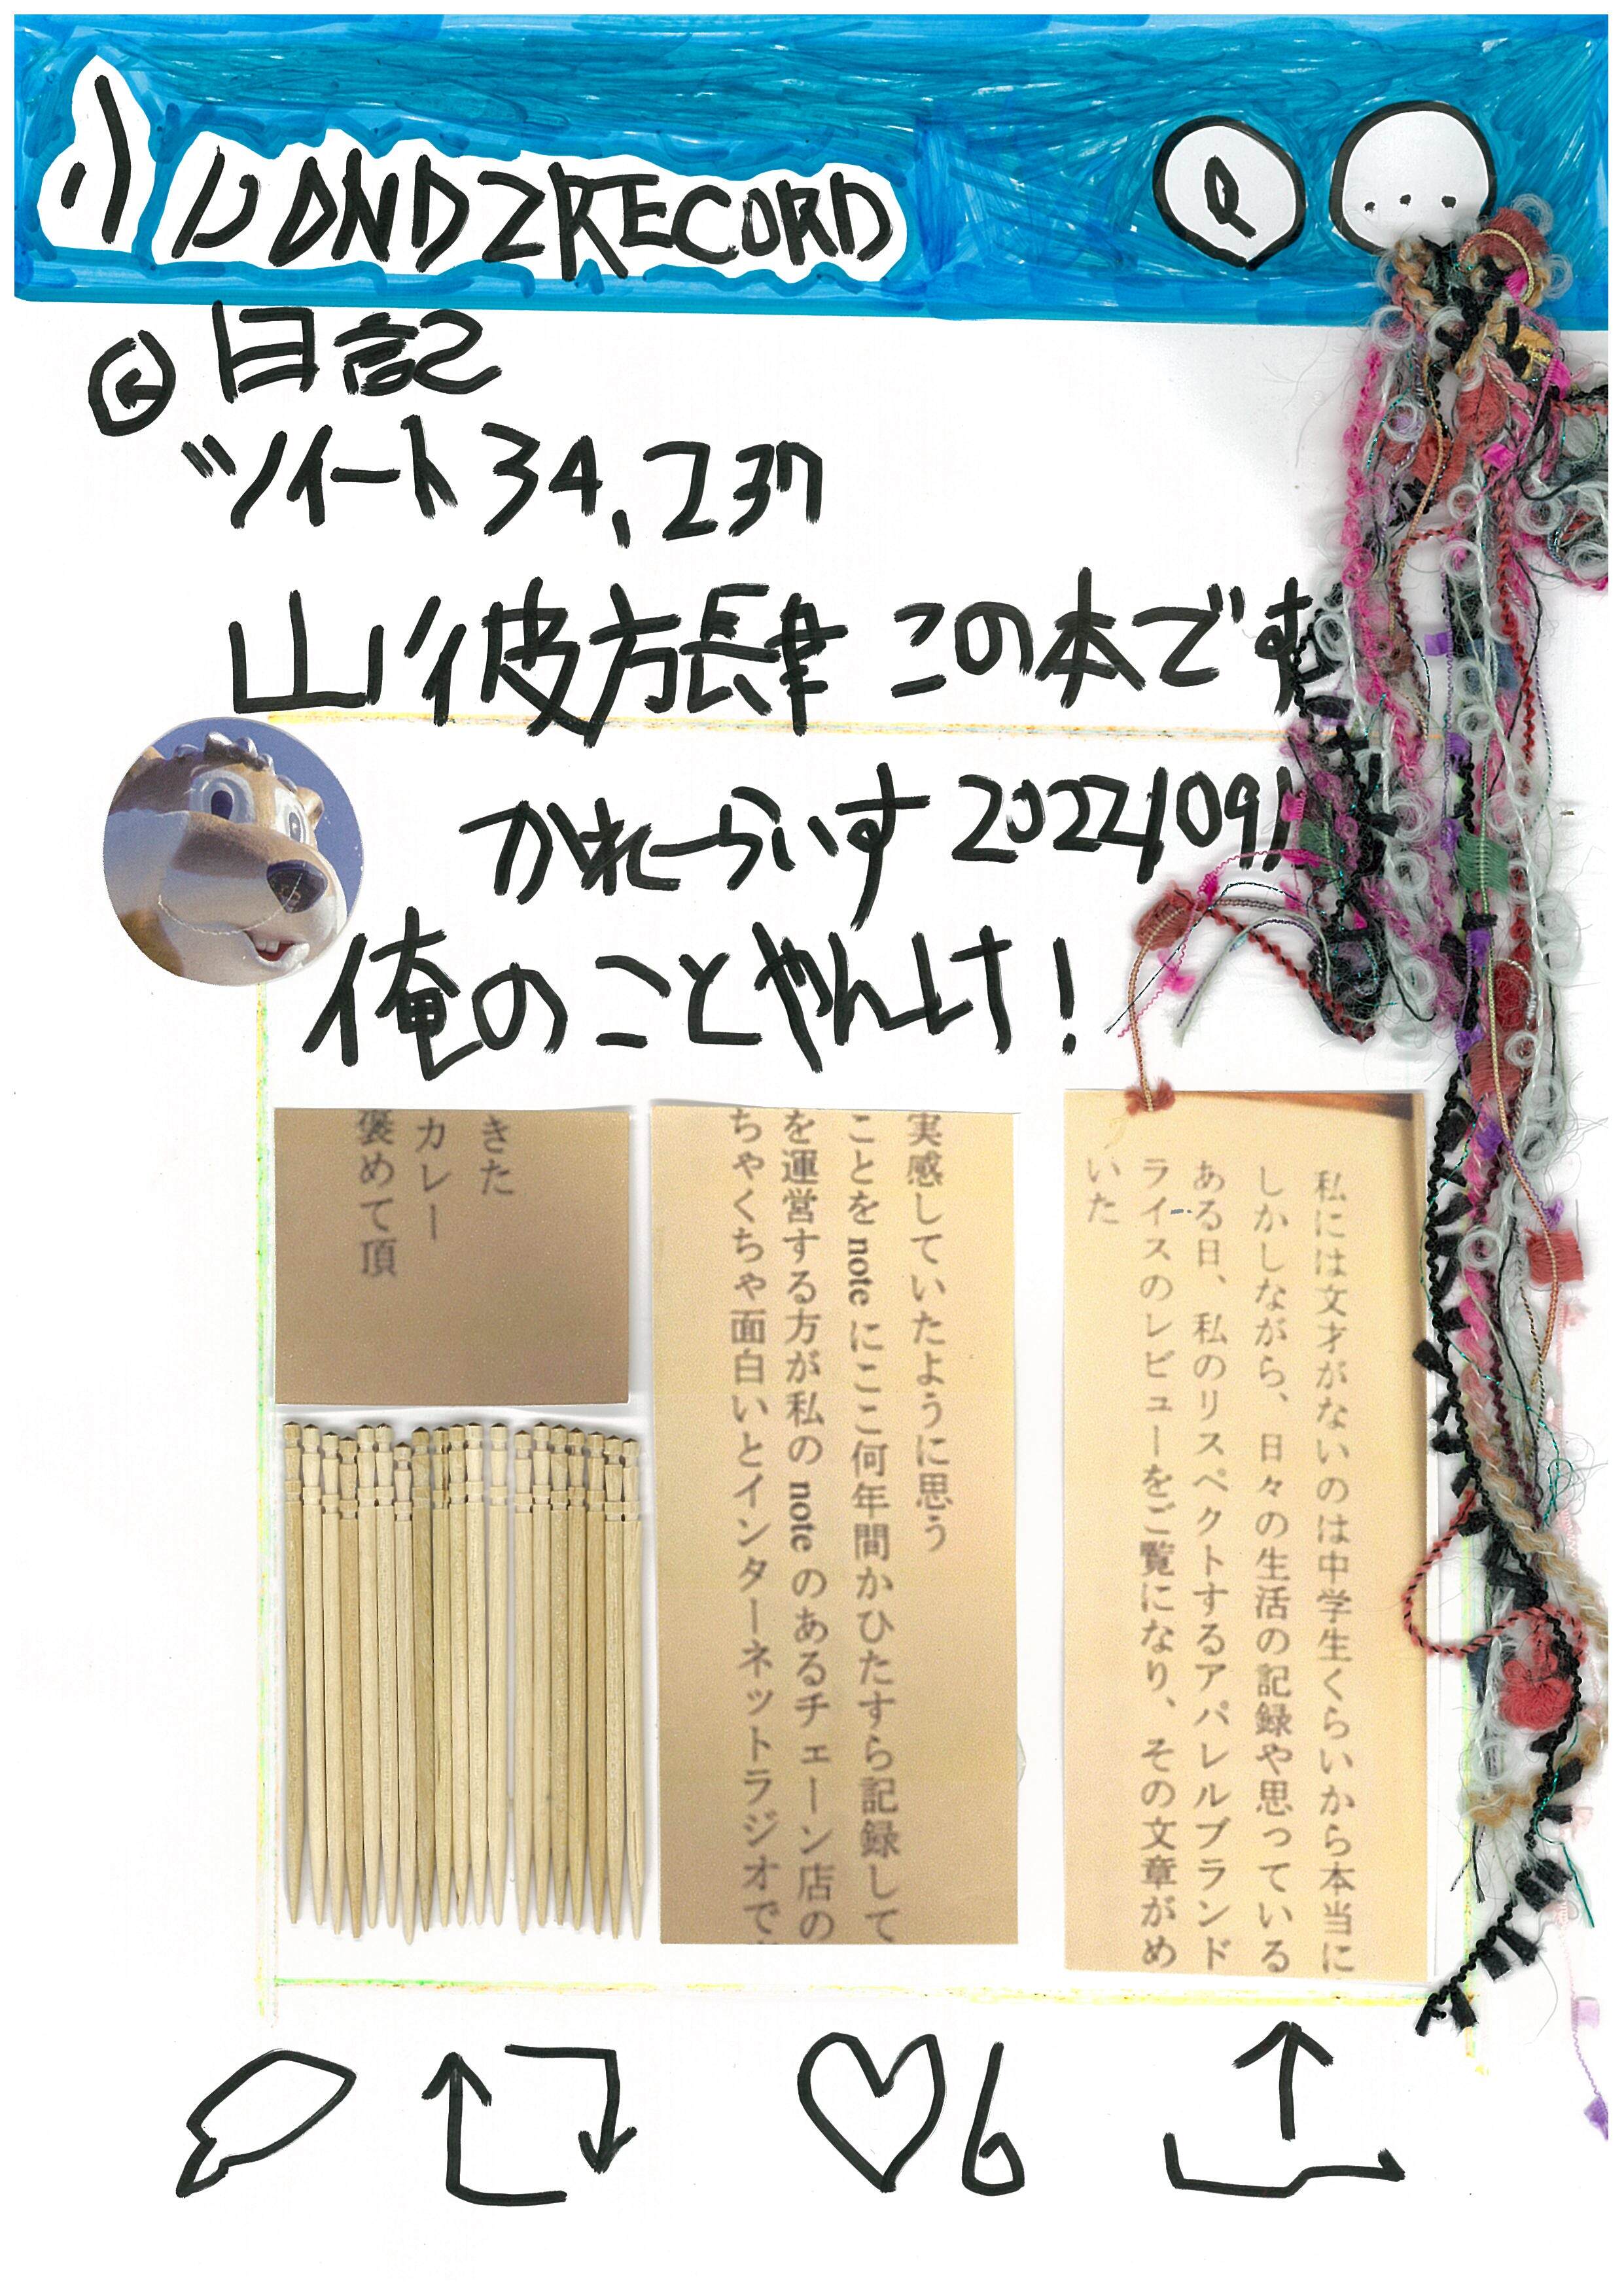 DND2RECORD
日記
ツイート 34,237
この本です
かれーらいす 2022/09/
俺のことやんけ!
私には文才がないのは中学生くらいから本当に
しかしながら、日々の生活の記録や思っている
ある日、私のリスペクトするアパレルブランド
ライスのレビューをご覧になり、その文章がめ
いた
実感していたように思う
ことをnoteにここ何年間かひたすら記録して
を運営する方が私のnoteのあるチェーン店の
ちゃくちゃ面白いとインターネットラジオで
きた
カレー
褒めて頂
6